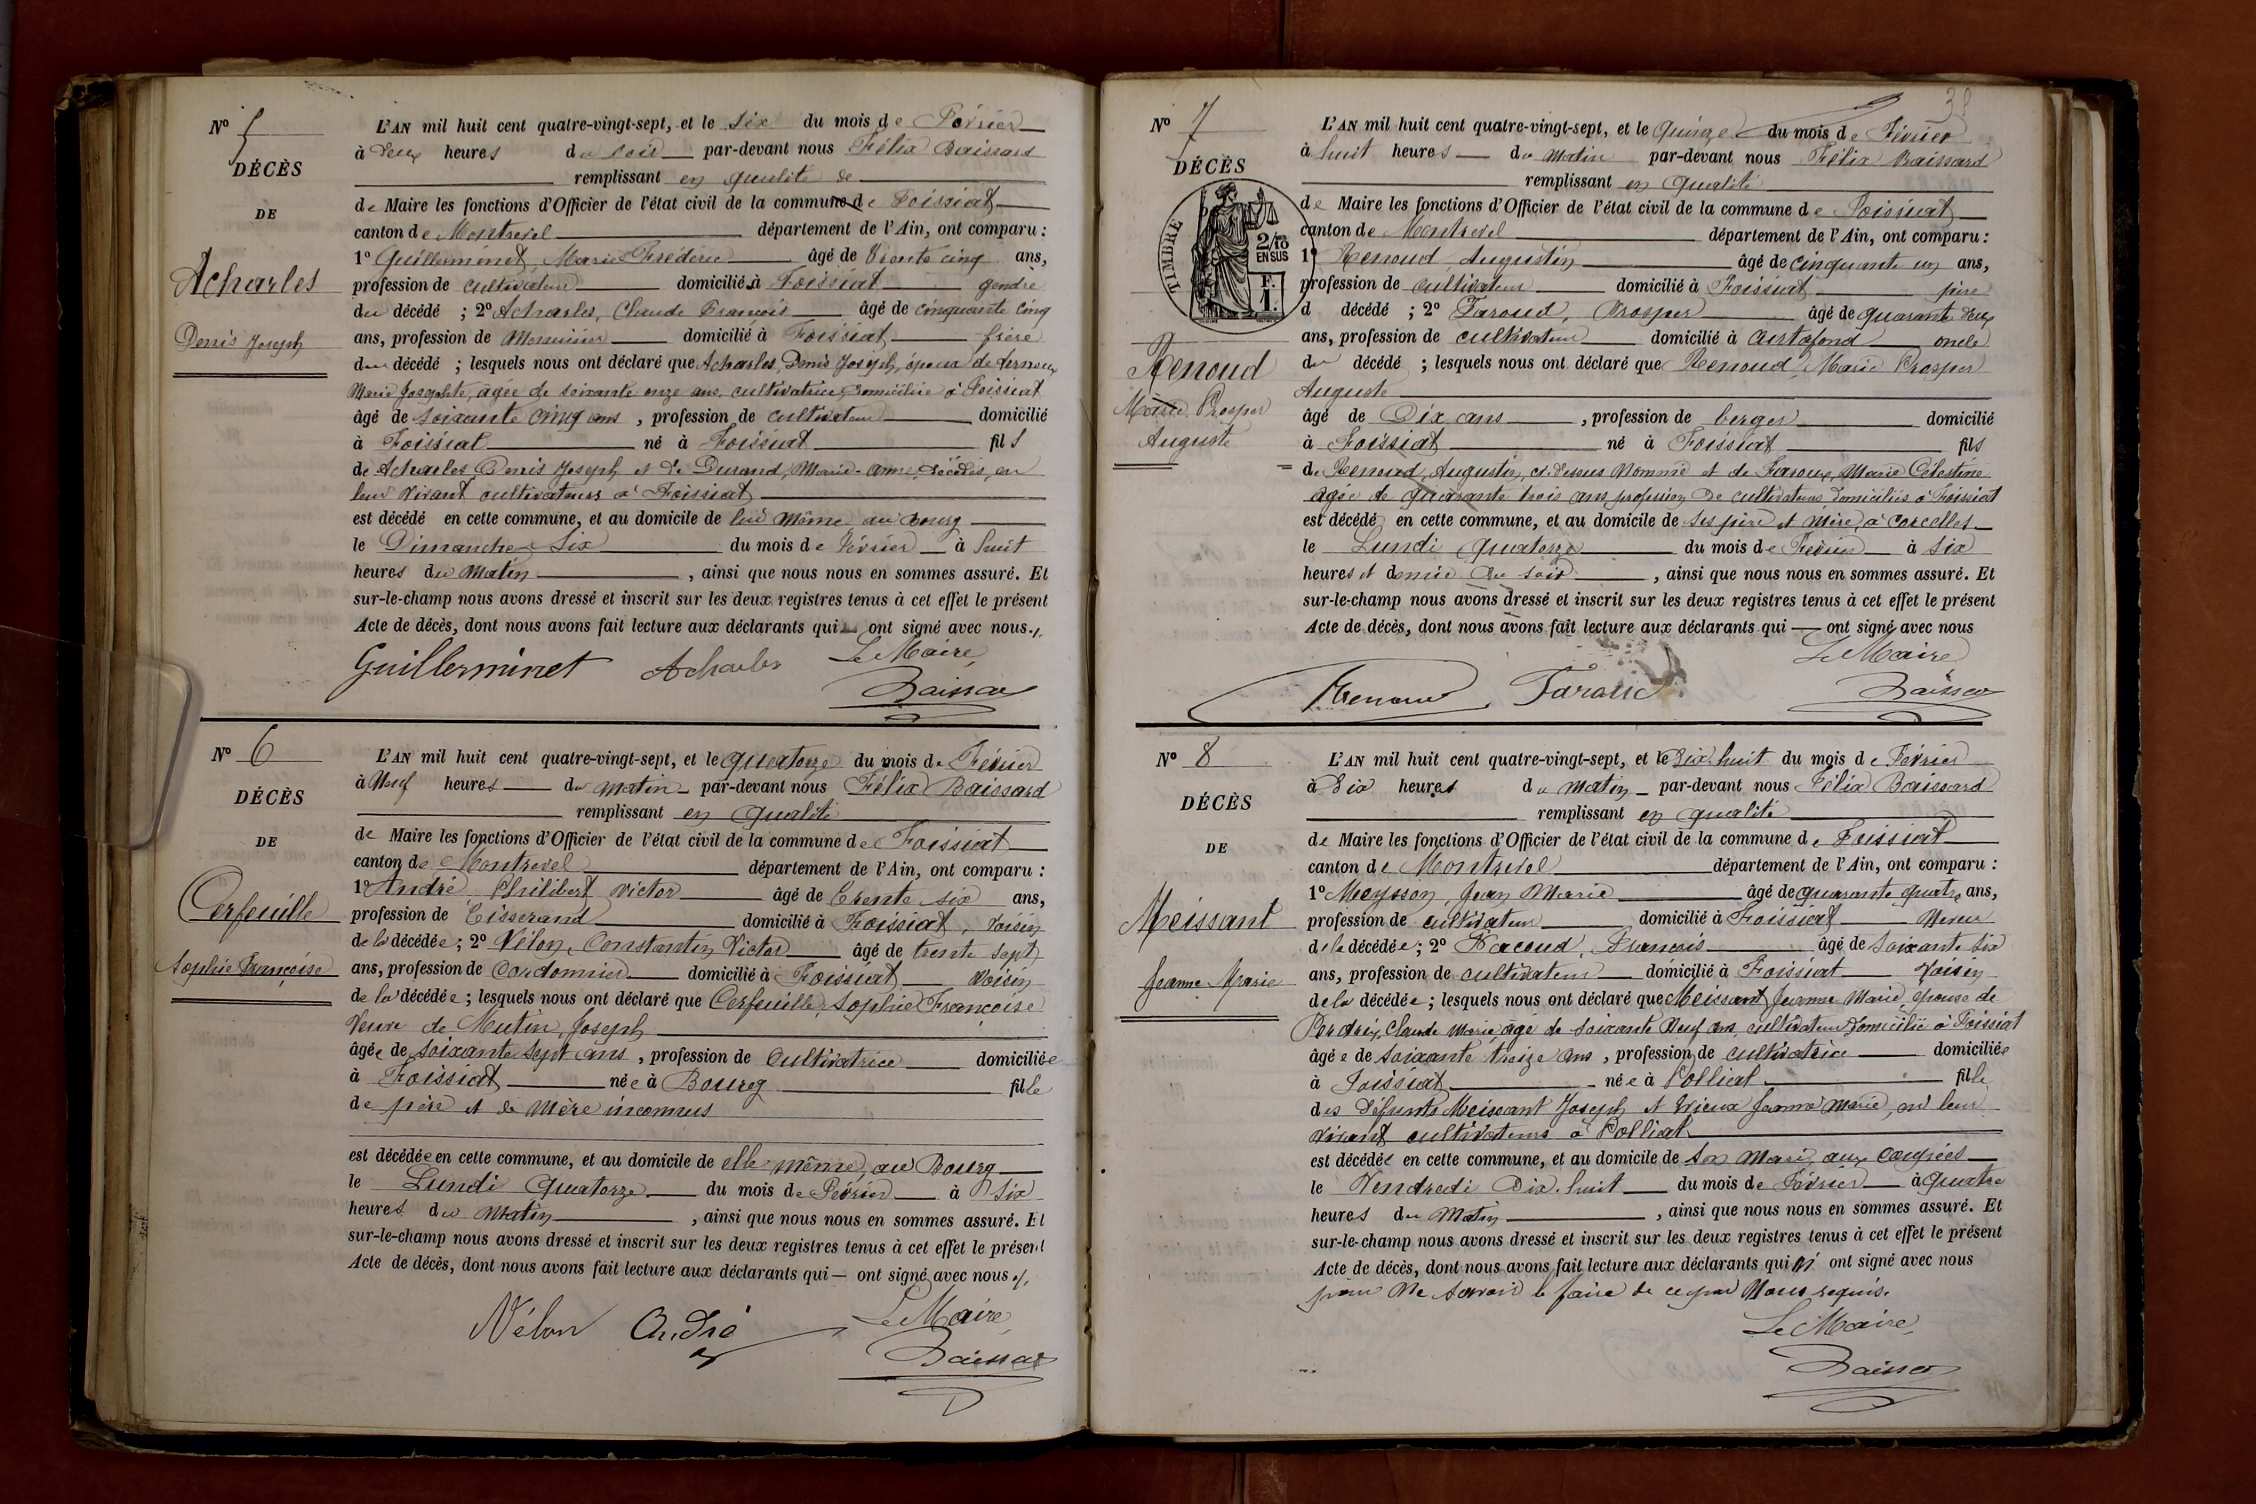 N° 5
DÉCÈS
DE
Acharles
Denis Joseph
L'AN mil huit cent quatre-vingt-sept, et le six du mois de Février
à deux heures du soir par-devant nous Félix Baissard
remplissant en qualité de
de Maire les fonctions d'Officier de l'état civil de la commune de Foissiat
canton de Montrevel département de l'Ain, ont comparu :
1° Guillerminet, Marie Frédéric âgé de trente cinq ans,
profession de cultivateur domicilié à Foissiat gendre
du décédé ; 2° Acharles, Claude François âgé de cinquante cinq
ans, profession de Menuisier domicilié à Foissiat frère
du décédé ; lesquels nous ont déclaré que Acharles, Denis Joseph, époux de
Marie Josephte, âgée de soixante onze ans, cultivatrice, domiciliée à Foissiat
âgé de soixante cinq ans, profession de cultivateur domicilié
à Foissiat né à Foissiat fils
de Acharles, Denis Joseph et de Durand, Marie-Anne, décédés, en
leur vivant cultivateurs à Foissiat
est décédé en cette commune, et au domicile de lui même au Bourg
le Dimanche Six du mois de Février à huit
heures du Matin, ainsi que nous nous en sommes assuré. Et
sur-le-champ nous avons dressé et inscrit sur les deux registres tenus à cet effet le présent
Acte de décès, dont nous avons fait lecture aux déclarants qui ont signé avec nous./.
Le Maire,
Guillerminet Acharles Baissard
N° 6
DÉCÈS
DE
Cerfeuille
Sophie Françoise
L'AN mil huit cent quatre-vingt-sept, et le quatorze du mois de Février
à Neuf heures du matin par-devant nous Félix Baissard
remplissant en qualité
de Maire les fonctions d'Officier de l'état civil de la commune de Foissiat
canton de Montrevel département de l'Ain, ont comparu :
1° André, Philibert Victor âgé de trente six ans,
profession de Tisserand domicilié à Foissiat, voisin
de la décédée ; 2° Vélon, Constantin Victor âgé de trente sept
ans, profession de Cordonnier domicilié à Foissiat Voisin
de la décédée ; lesquels nous ont déclaré que Cerfeuille, Sophie Françoise
Veuve de Mutin, Joseph
âgée de soixante sept ans, profession de cultivatrice domiciliée
à Foissiat née à Bourg fille
de père et de mère inconnus
est décédée en cette commune, et au domicile de elle même, au Bourg
le Lundi Quatorze du mois de Février à six
heures du Matin, ainsi que nous nous en sommes assuré. Et
sur-le-champ nous avons dressé et inscrit sur les deux registres tenus à cet effet le présent
Acte de décès, dont nous avons fait lecture aux déclarants qui — ont signé avec nous ./.
Vélon André Le Maire,
Baissard
38
N° 7
DÉCÈS
TIMBRE
2/10
EN SUS
F.
1.
Renoud
Marie Prosper
Auguste
L'AN mil huit cent quatre-vingt-sept, et le Quinze du mois de Février
à huit heures du Matin par-devant nous Félix Baissard
remplissant en Qualité
de Maire les fonctions d'Officier de l'état civil de la commune de Foissiat
canton de Montrevel département de l'Ain, ont comparu :
1° Renoud, Augustin âgé de cinquante un ans,
profession de cultivateur domicilié à Foissiat père
d décédé ; 2° Faroud, Prosper âgé de quarante deux
ans, profession de cultivateur domicilié à Curtafond oncle
du décédé ; lesquels nous ont déclaré que Renoud, Marie Prosper
Auguste
âgé de Dix ans, profession de berger domicilié
à Foissiat né à Foissiat fils
de Renoud, Augustin, ci-dessus Nommé et de Faroux, Marie Célestine
agée de quarante trois ans, profession de cultivateurs domiciliés à Foissiat
est décédé en cette commune, et au domicile de ses père et mère, à Corcelles
le Lundi Quatorze du mois de Février à six
heures et demie du soir, ainsi que nous nous en sommes assuré. Et
sur-le-champ nous avons dressé et inscrit sur les deux registres tenus à cet effet le présent
Acte de décès, dont nous avons fait lecture aux déclarants qui — ont signé avec nous
Le Maire
Renoud Faroud Baissard
N° 8
DÉCÈS
DE
Meissant
Jeanne Marie
L'AN mil huit cent quatre-vingt-sept, et le Dix huit du mois de Février
à Dix heures du Matin par-devant nous Félix Baissard
remplissant en qualité
de Maire les fonctions d'Officier de l'état civil de la commune de Foissiat
canton de Montrevel département de l'Ain, ont comparu :
1° Meysson, Jean Marie âgé de quarante quatre ans,
profession de cultivateur domicilié à Foissiat Neveu
de la décédée ; 2° Pacoud, François âgé de soixante six
ans, profession de cultivateur domicilié à Foissiat Voisin
de la décédée ; lesquels nous ont déclaré que Meissant, Jeanne Marie, épouse de
Perdrix, Claude Marie, âgé de soixante Neuf ans, cultivateur domicilié à Foissiat
âgée de soixante treize ans, profession de cultivatrice domiciliée
à Foissiat née à Polliat fille
des défunts Meissant Joseph et Vrieux Jeanne Marie, en leur
vivant cultivateurs à Polliat
est décédée en cette commune, et au domicile de son Mari, aux
le Vendredi Dix-huit du mois de Février à quatre
heures du Matin, ainsi que nous nous en sommes assuré. Et
sur-le-champ nous avons dressé et inscrit sur les deux registres tenus à cet effet le présent
Acte de décès, dont nous avons fait lecture aux déclarants qui n' ont signé avec nous
pour Ne savoir le faire de ce par Nous requis.
Le Maire,
Baissard